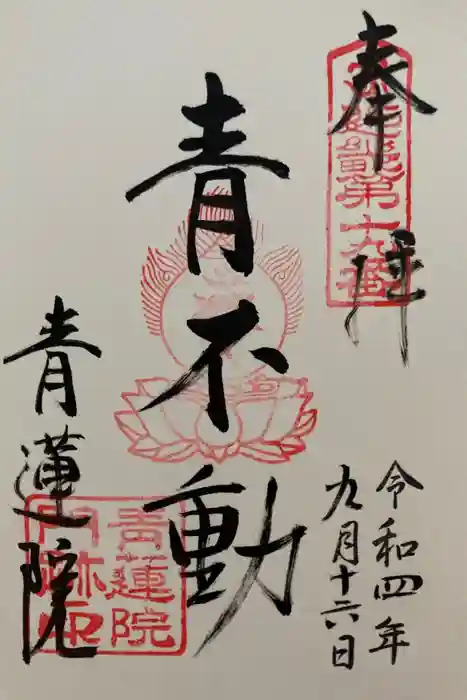 奉拝
青不動
青蓮院
令和四年
九月十六日
青蓮院
門跡印